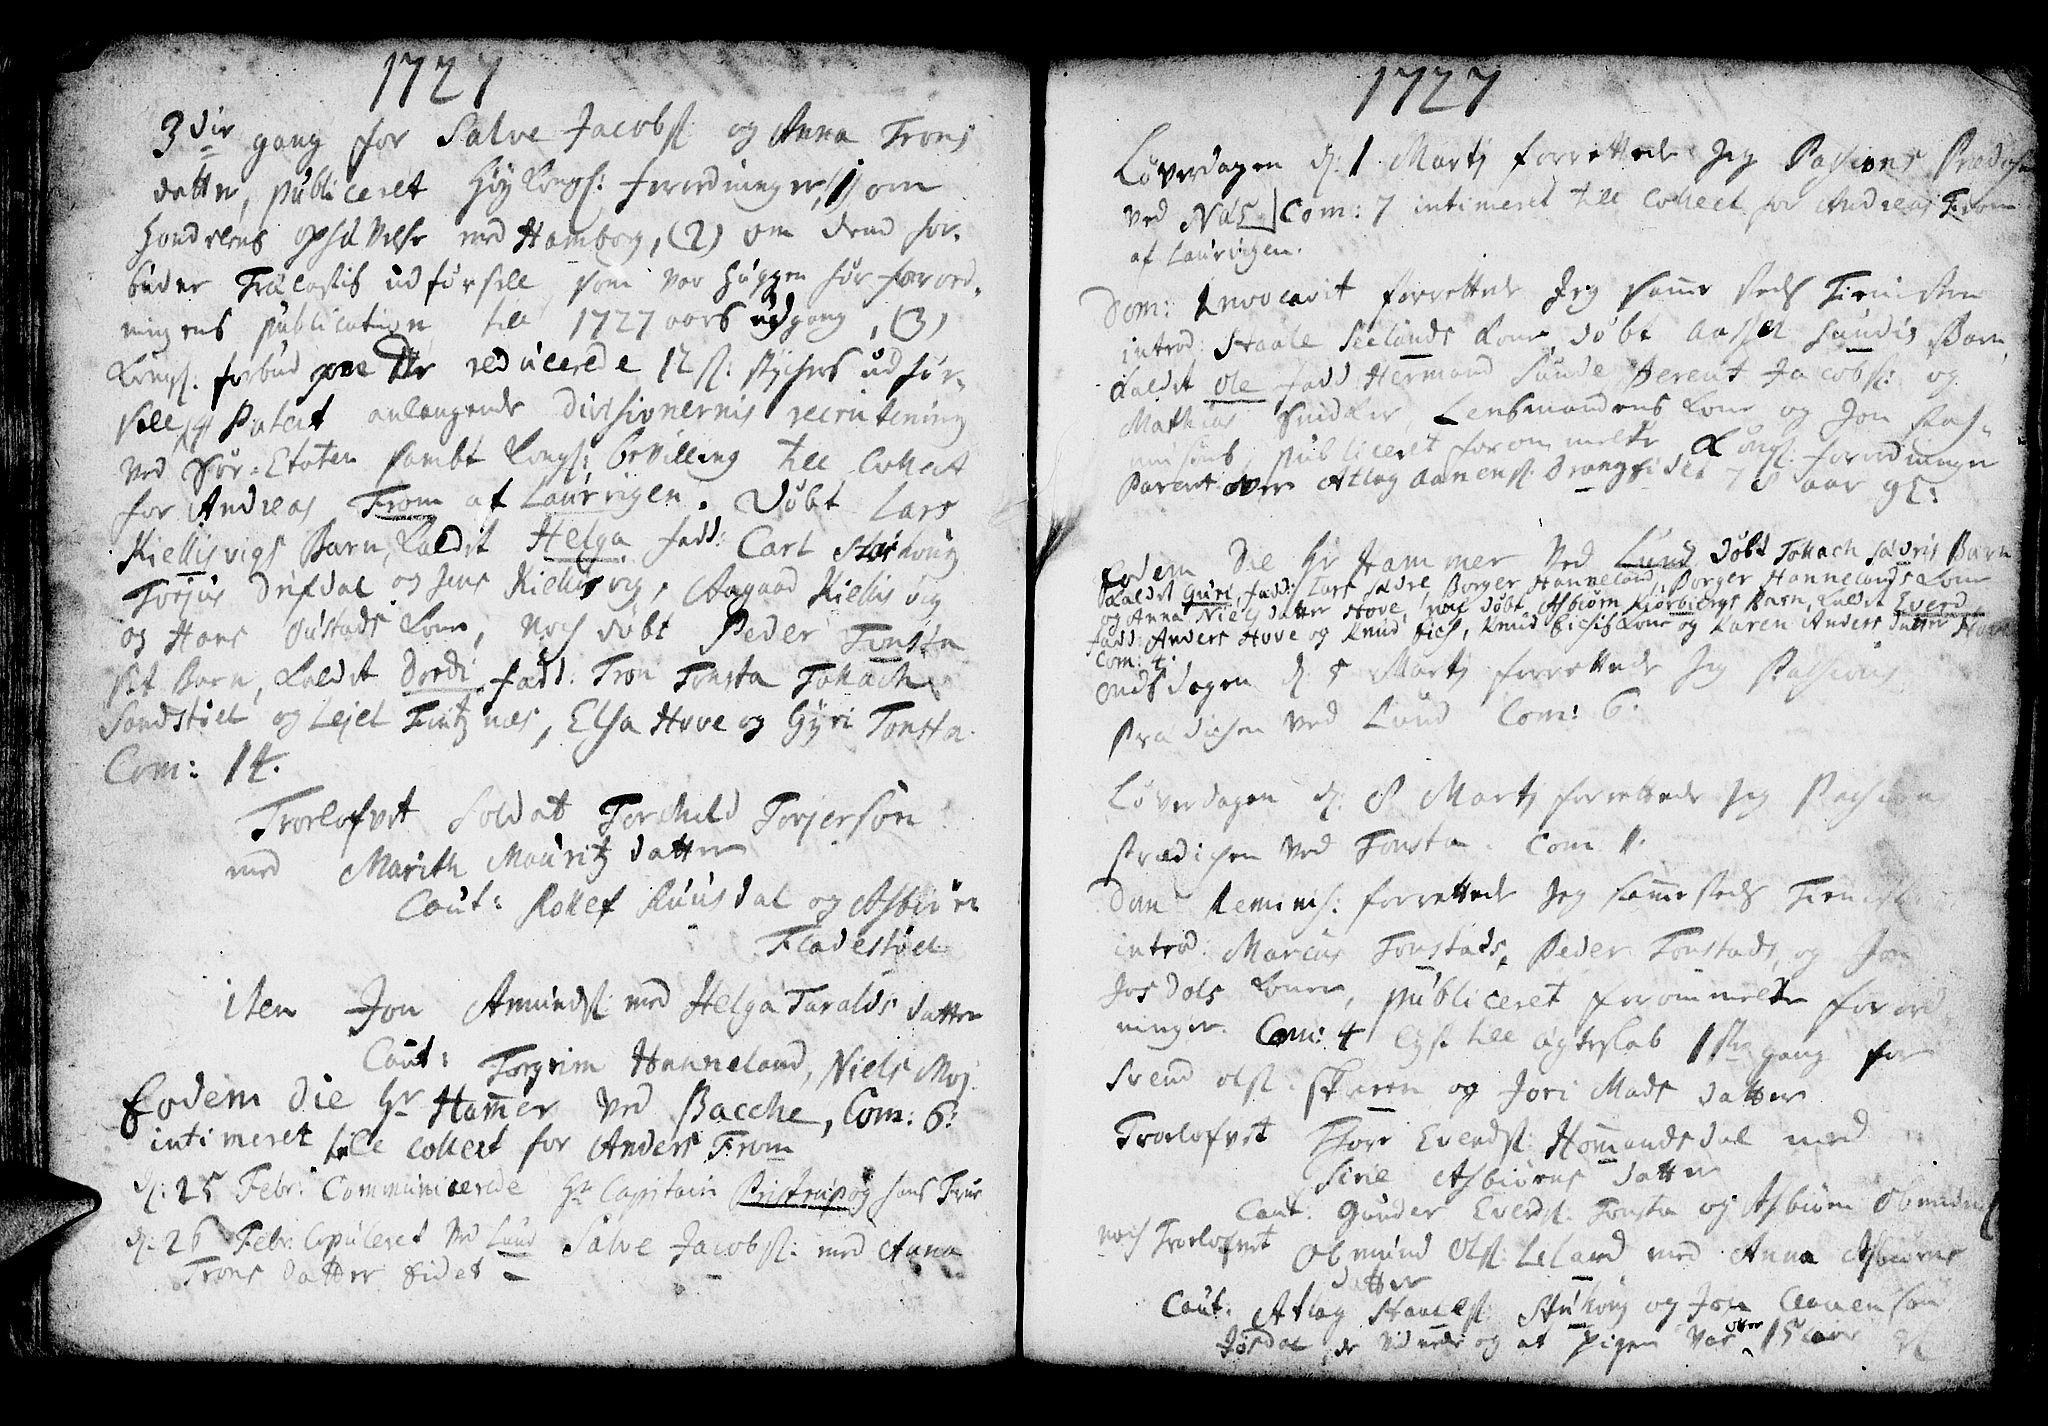 1727
3die gang for Salve Jacobs: og Anna Trons
datter, publiceret Høy Kongl: forordninger, (1) om
Handelens ophævelse med Hamborg, (2) om dend for-
buden Trælastis udførsell, som var huggen før forord-
ningens publication till 1727 aars udgang, (3)
Kongl: forbud paa de reducerede 12 s: stychers udfør-
sell (4) Patent anlangende divisionernis recrutering
ved Søe-Etaten sambt Kongl: bevilling till Collect
for Andreas From af Laurvigen. Døbt Lars
Kiellisvigs Barn, kaldet Helga fadd: Carl
Torjus Drifdal og Jens Kiellisvig, Aagaad Kiellisvig
og Hans Kone, noch døbt Peder Tonsta
sit Barn, kaldet Dordi, fadd: Tron Tonsta Tollach
Sandstøel og Lejel Fintznæs, Elsa Hove og Gyri Tonsta
Com: 14.
Troelofvet Soldat Torchild Torjersøn
med Marith Mauritz datter
Caut: Rollef Ruusdal og Asbiørn
Fladestøel
iten Jon Amunds: med Helga Taralds datter
Caut: Torgrim Hanneland, Niels Moj
Eodem die Hr Hammer ved Bacche, Com: 6:
intimeret till collect for Anders From
d: 25 Febr: Communicerede Hr Capitain Pristrup og hans Frue
d: 26 Febr: Copuleret ved Lund Salve Jacobs: med Anna
Trons datter Eidet
1727
Løverdagen d: 1 Martj forrettede Jeg Passions Prædichen
ved Næs Com: 7 intimeret till Collect for Andreas From
af Laurvigen.
Dom: Invocavit forrettede Jeg samme steds Tienisten
introd: Staale Seelands Kone, døbt Sundis Barn,
kaldet Ole fadd Hermand Sunde Berent Jacobs: og
Mathias Snidker, Lensmandens Kone og Jon
publiceret forommelte Kongl: forordninger
Parent: over Atlag Aanens: Drangsidet 78 aar gl:
Eodem die Hr Hammer ved Lund døbt Tollach Sædris Barn
kaldet Guri, fadd: Lars Sædre, Borger Hanneland, Borger Hannelands Kone
og Anna Niels datter Hove, noch døbt Asbiørn Kiørbergs Barn, kaldet Everd
fadd: Anders Hove og Knud Eich, Knud Eichis Kone og Karen Anders datter Hove
Com: 4.
Onsdagen d: 5 Martj forrettede Jeg Passions
Prædichen ved Lund Com: 6.
Løverdagen d: 8 Martj forrettede Jeg Passions
Prædichen ved Tonsta. Com 11.
Dom Reminis: forrettede Jeg samme steds Tienisten
introd: Marcus Tonstads, Peder Tonstads, og Jon
Josdals Koner, publiceret forommelte forord
ninger. Com: 4 lyst till ægteskab 1ste gang for
Svend Ols: Skaren og Jori Mads datter
Troelofvet Thore Everds: Hommandsdal med
Sirie Asbiørns datter
Caut. Gunder Everds: Tonsta og Asbiørn
noch Troelofvet Obmund Ols: Leland med Anna Asbiørns
datter
Caut: Atlag Staales: og Jon Aanensøn
Josdal, de vidnede og at Pigen var over 15 aar